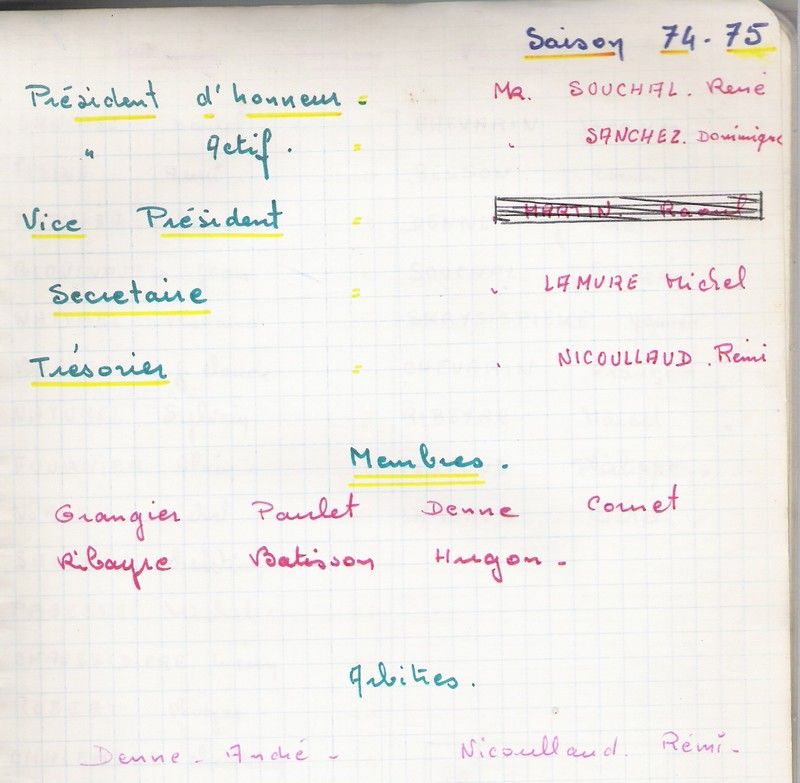 Saison 74-75
Président d'honneur = Mr. SOUCHAL. René
" Actif. = " SANCHEZ. Dominique
Vice Président = MARTIN. Raoul
Secretaire = " LAMURE Michel
Trésorier = " NICOULLAUD. Rémi
Membres.
Grangier Paulet Denne Cornet
Ribayre Batisson Hugon -
Arbitres.
Denne - André - Nicoullaud. Rémi -